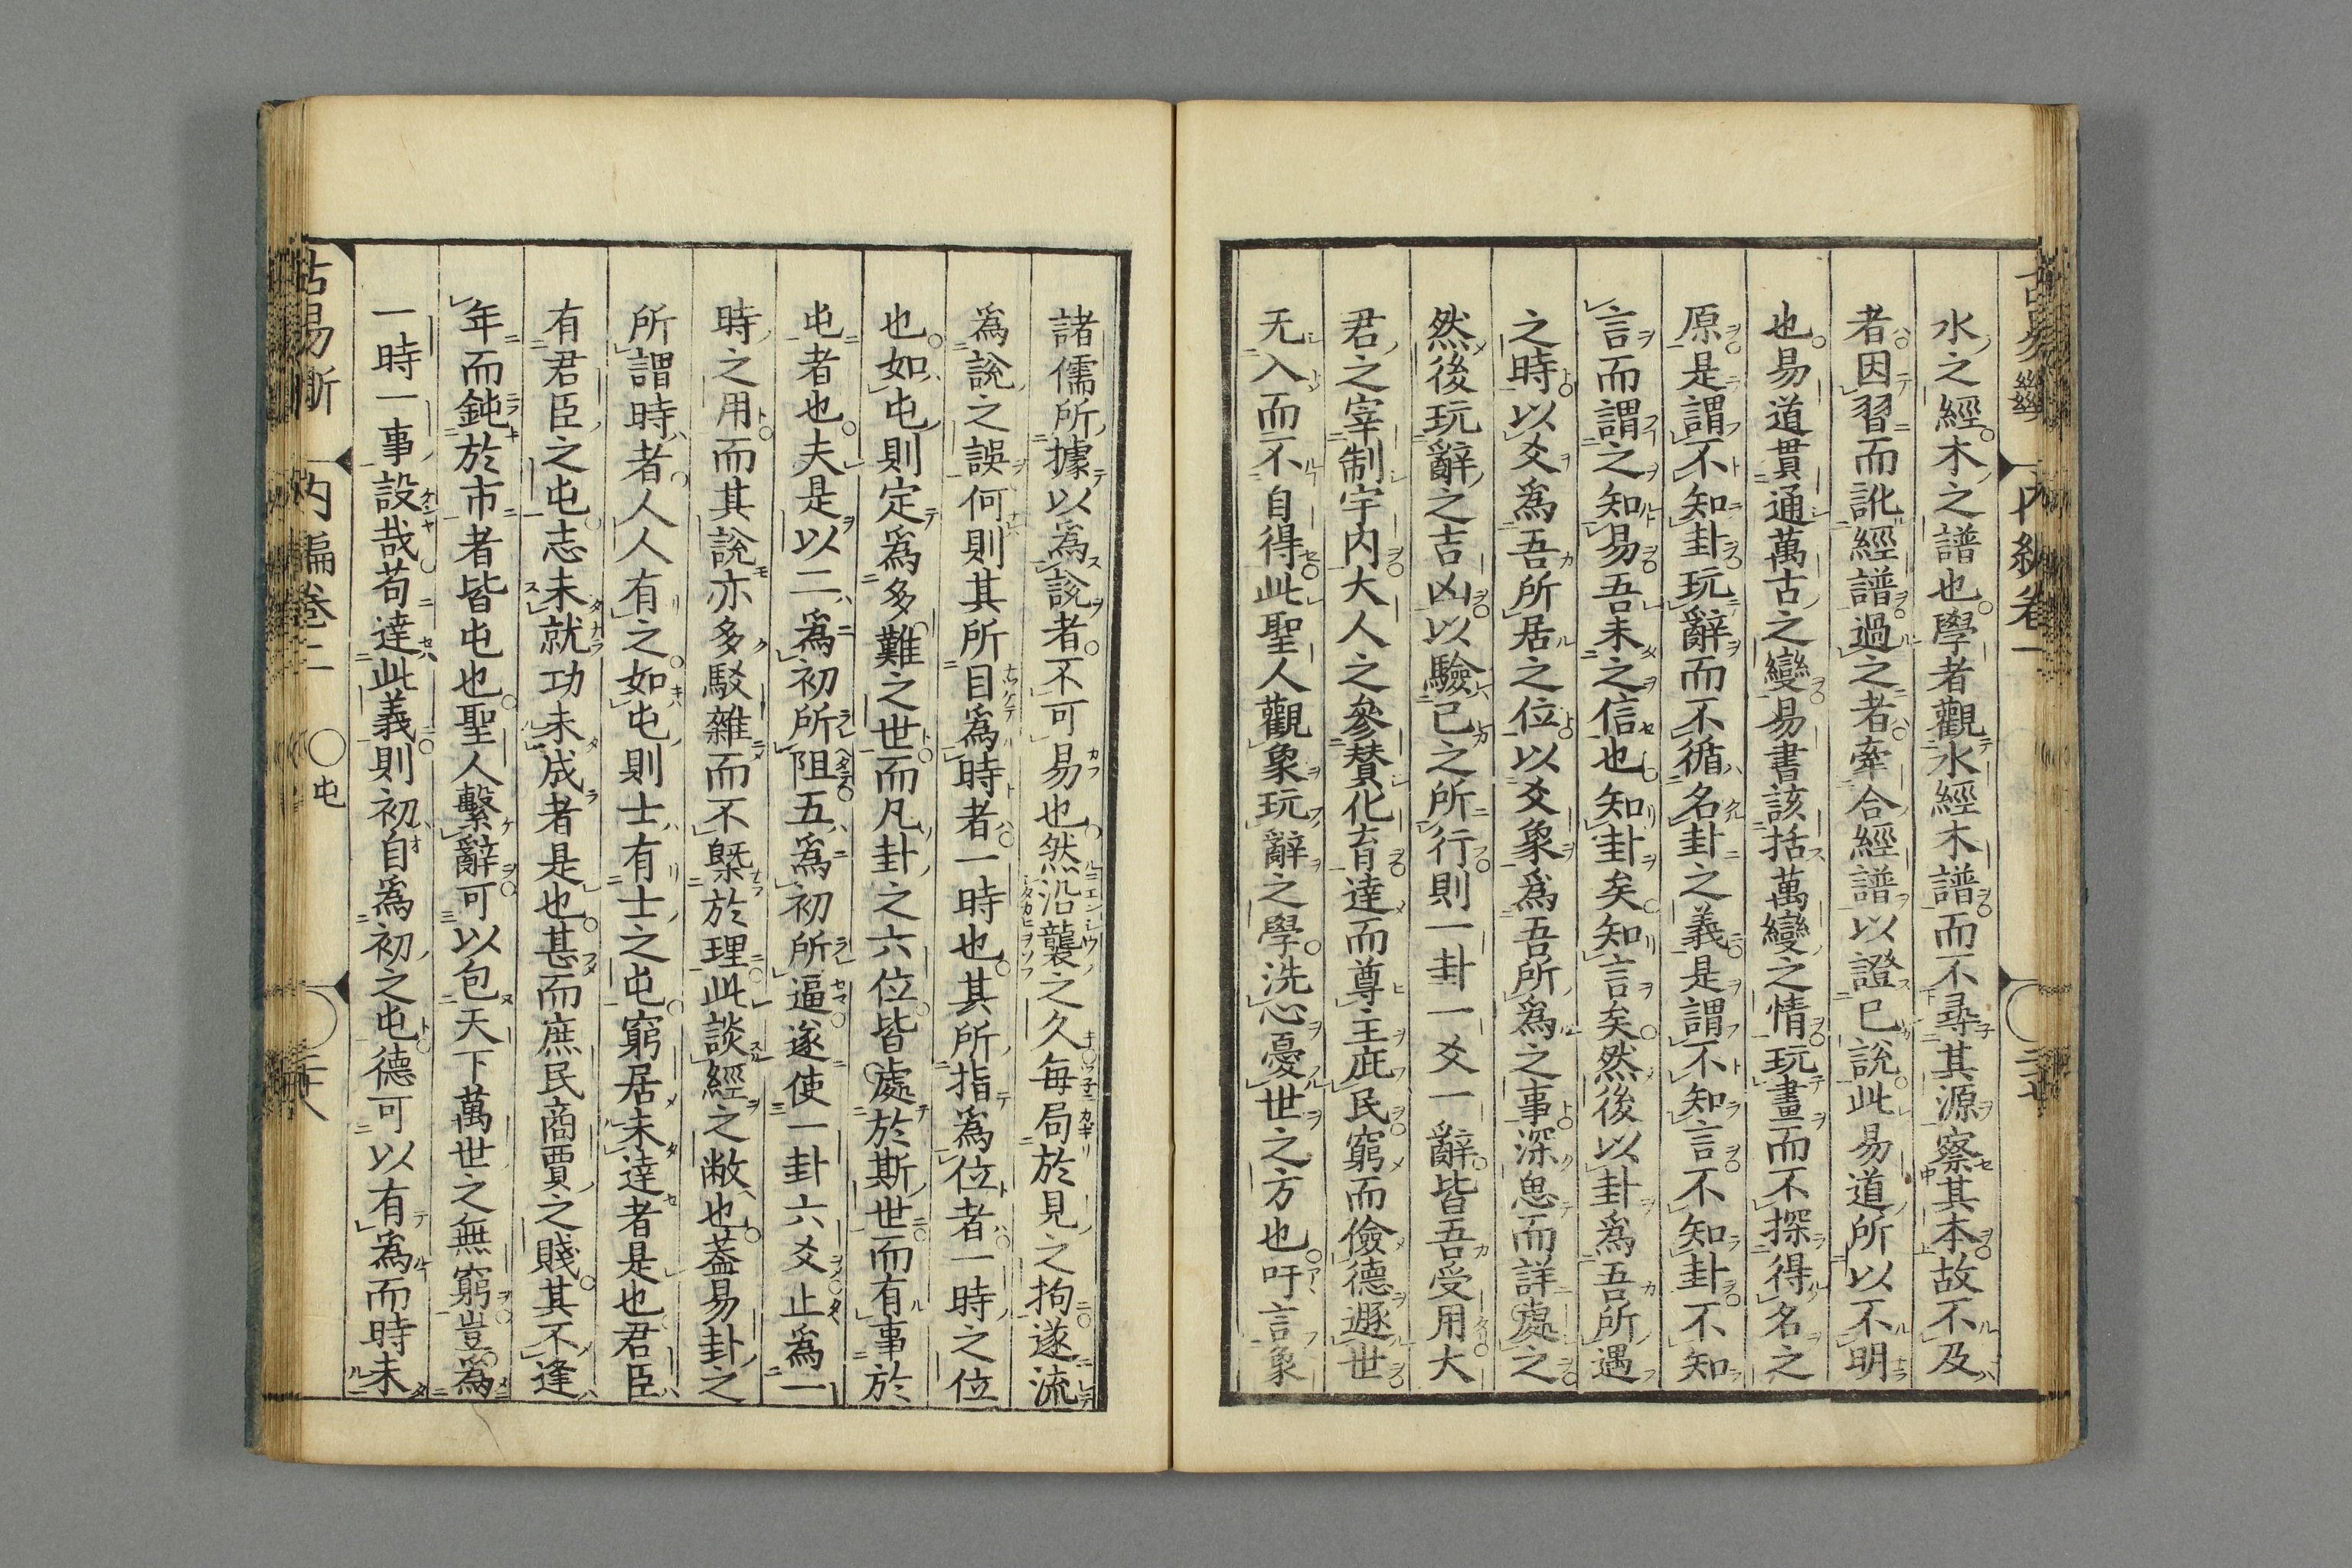 水之經木之譜也學者觀水經木譜而不尋其源察其本故不及
者因習而訛經譜過之者牽合經譜以證已說此易道所以不明
也易道貫通萬古之變易書該括萬變之情玩畫而不探得名之
原是謂不知卦玩辭而不循名卦之義是謂不知言不知卦不知
言而謂之知易吾未之信也知卦矣知言矣然後以卦爲吾所遇
之時以爻爲吾所居之位以爻象爲吾所爲之事深思而詳處之
然後玩辭之吉凶以驗己之所行則一卦一爻一辭皆吾受用大
君之宰制宇内大人之參賛化育達而尊主庇民窮而儉德遯世
无入而不自得此聖人觀象玩辭之學洗心憂世之方也吁言象
諸儒所據以爲說者不可易也然沿襲之久毎局於見之拘遂流
爲說之誤何則其所目爲時者一時也其所指爲位者一時之位
也如屯則定爲多難之世而凡卦之六位皆處於斯世而有事於
屯者也夫是以二爲初所阻五爲初所逼遂使一卦六爻止爲一
時之用而其說亦多駁雜而不槩於理此談經之敝也葢易卦之
所謂時者人人有之如屯則士有士之屯窮居未達者是也君臣
有君臣之屯志未就功未成者是也甚而庶民商賈之賤其不逢
年而鈍於市者皆屯也聖人繫辭可以包天下萬世之無窮豈爲
一時一事設哉苟達此義則初自爲初之屯德可以有爲而時未
古易斷 内編卷二 ○屯